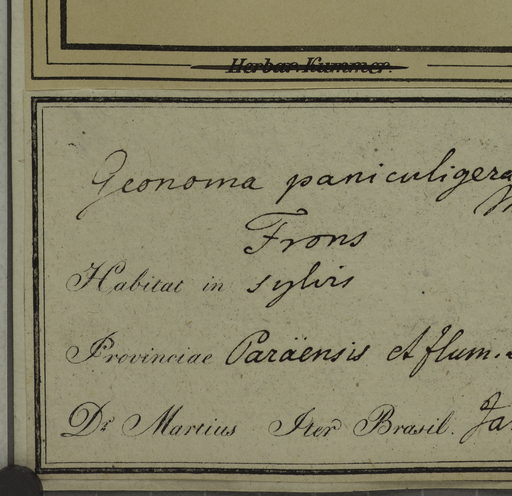 Herbar. Kummer.
Geonoma paniculigera
Frons
Habitat in sylvis
Provinciae Paraënsis et flum.
Dr. Martius Iter Brasil.